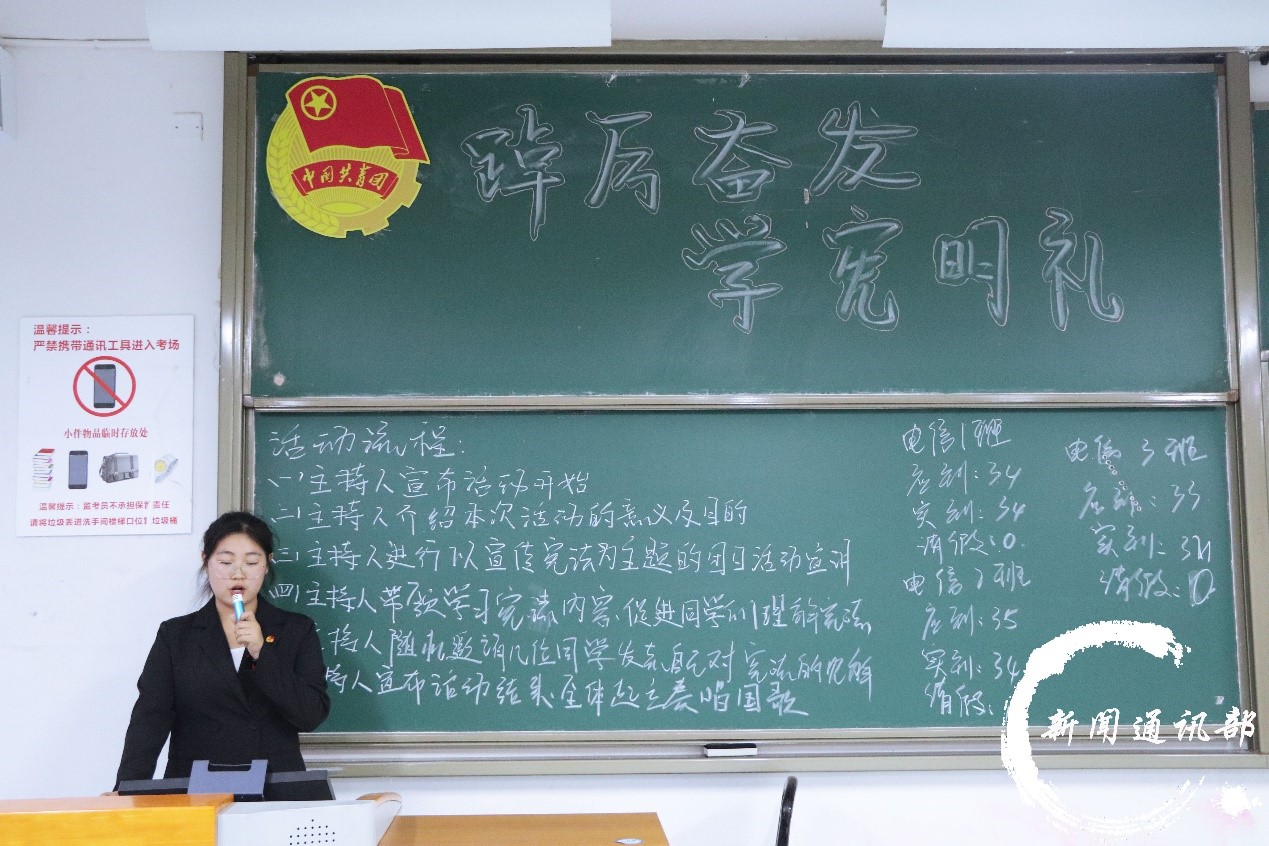 中国共青团
踔厉奋发
学宪明礼
温馨提示：
严禁携带通讯工具进入考场
小件物品临时存放处
温馨提示：监考员不承担保管责任
请将垃圾丢进洗手间楼梯口位置垃圾桶
活动流程：
(一)主持人宣布活动开始
(二)主持人介绍本次活动的意义及目的
(三)主持人进行以宣传宪法为主题的团日活动宣讲
(四)主持人带领学习宪法内容、促进同学们理解宪法
持人随机邀请几位同学发表自己对宪法的见解
持人宣布活动结束、全体起立奏唱国歌
电信1班
应到：34
实到：34
请假：0
电信2班
应到：35
实到：34
请假：
电信3班
应到：33
实到：
请假：0
新闻通讯部